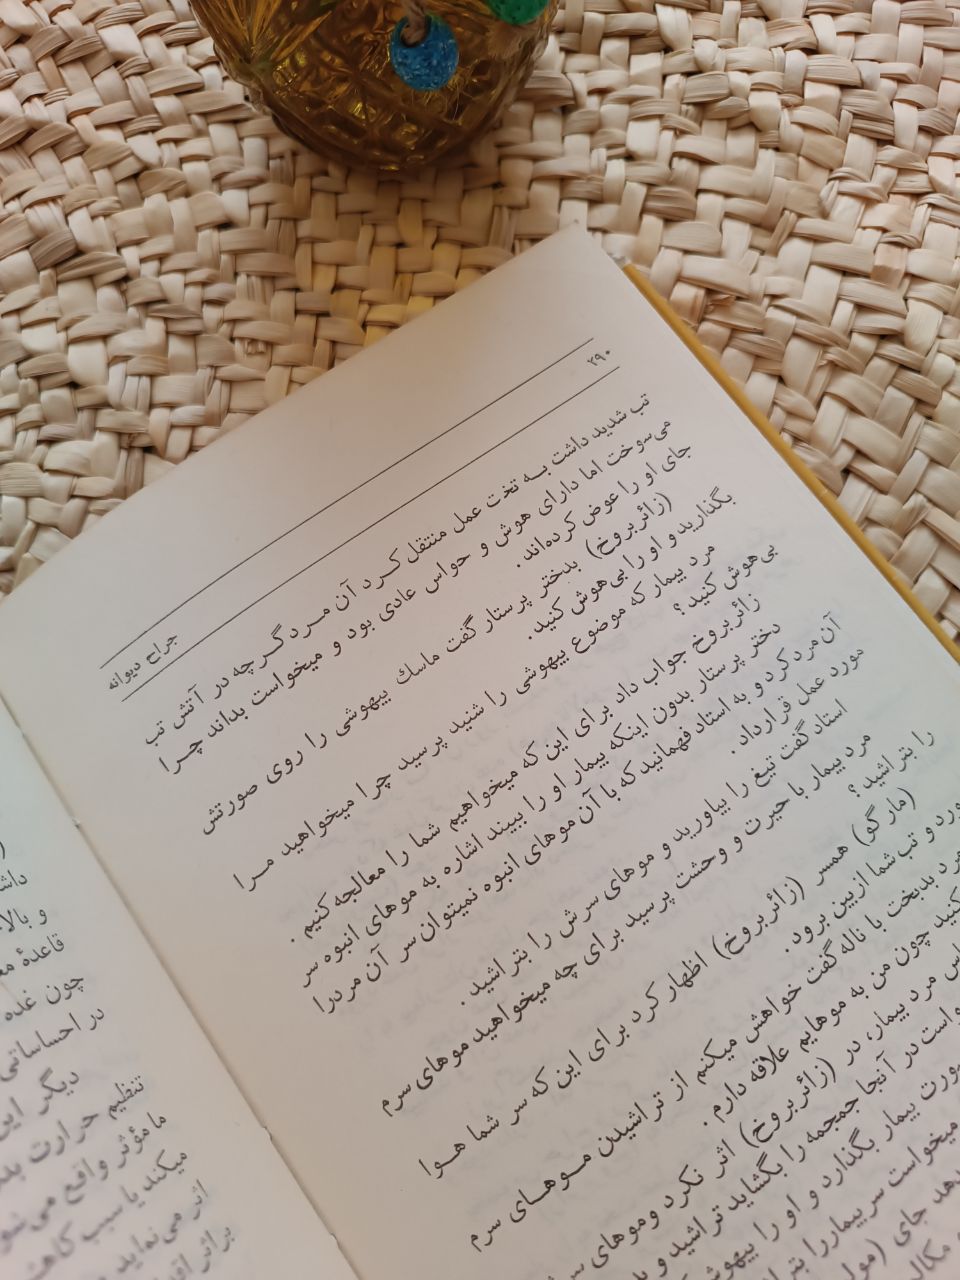 ۲۹۰
جراح دیوانه
تب شدید داشت بـه تخت عمل منتقل کـرد آن مـرد گـرچه در آتش تب
می‌سوخت اما دارای هوش و حواس عادی بود و میخواست بداند چـرا
جای او را عوض کرده‌اند.
(زائربروخ) بدختر پرستار گفت ماسك بیهوشی را روی صورتش
بگذارید و او را بی‌هوش کنید.
مرد بیمار که موضوع بیهوشی را شنید پرسید چرا میخواهید مـرا
بی‌هوش کنید؟
زائربروخ جواب داد برای این که میخواهیم شما را معالجه کنیم.
دختر پرستار بدون اینکه بیمار او را ببیند اشاره به موهای انبوه سر
آن مرد کرد و به استاد فهمانید که با آن موهای انبوه نمیتوان سر آن مردرا
مورد عمل قرارداد.
استاد گفت تیغ را بیاورید و موهای سرش را بتراشید.
مرد بیمار با حیرت و وحشت پرسید برای چه میخواهید موهای سرم
را بتراشید؟
(مارگو) همسر (زائربروخ) اظهار کرد برای این که سر شما هـوا
ورد و تب شما ازبین برود.
مرد بدبخت با ناله گفت خواهش میکنم از تراشیدن مـوهـای سرم
کنید چون من به موهایم علاقه دارم.
مرد بیمار، در (زائربروخ) اثر نکرد وموهای
در آنجا جمجمه را بگشاید تراشید و
بیمار بگذارد و او را
میخواست سر بیماررا
جای
داش
و بالا
قاعدهٔ
چون غده
در احساساتی
دیگر این
تنظیم حرارت
ما مؤثر واقع می‌شو
میکند یا سبب کاهش
اثر می‌نماید
براثر